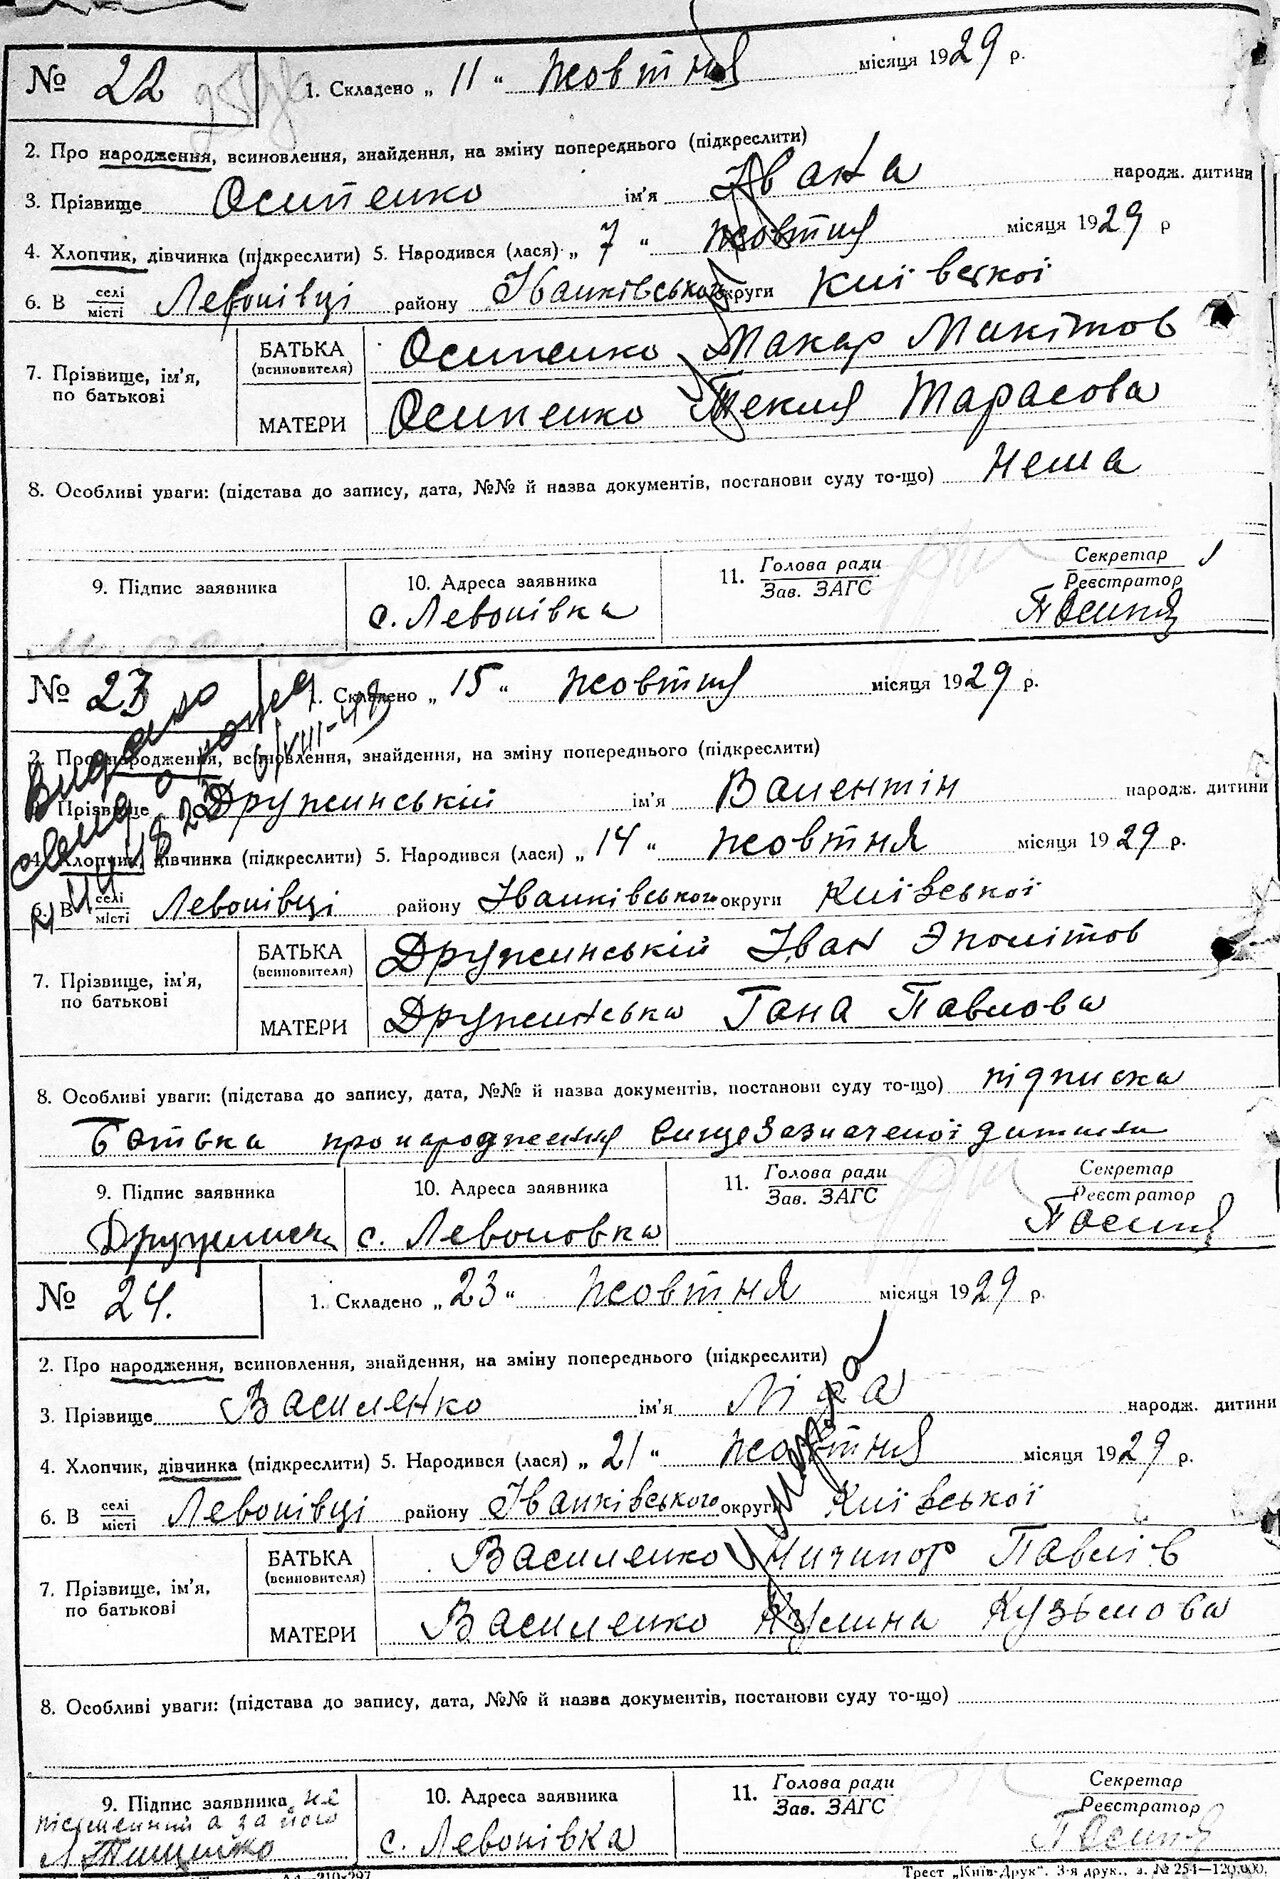 № 22 1. Складено „ 11 “ жовтня місяця 1929 р.
2. Про народження, всиновлення, знайдення, на зміну попереднього (підкреслити)
3. Прізвище Осипенко ім'я Івана народж. дитини
4. Хлопчик, дівчинка (підкреслити) 5. Народився (лася) „ 7 “ жовтня місяця 1929 р
6. В селі місті Левонівці району Іванківського округи Київської
7. Прізвище, ім'я, по батькові
БАТЬКА (всиновителя) Осипенко Макар Микітов
МАТЕРИ Осипенко Текля Тарасова
8. Особливі уваги: (підстава до запису, дата, №№ й назва документів, постанови суду то-що) нема
9. Підпис заявника 10. Адреса заявника 11. Голова ради Зав. ЗАГС Секретар Реєстратор
с. Левонівка
№ 23 1. Складено „ 15 “ жовтня місяця 1929 р.
Видано
2. Про народження, всиновлення, знайдення, на зміну попереднього (підкреслити)
3. Прізвище Дружинський ім'я Валентін народж. дитини
4. Хлопчик, дівчинка (підкреслити) 5. Народився (лася) „ 14 “ жовтня місяця 1929 р.
6. В селі місті Левонівці району Іванківського округи Київської
7. Прізвище, ім'я, по батькові
БАТЬКА (всиновителя) Дружинській Іван Эполітов
МАТЕРИ Дружинська Гана Павлова
8. Особливі уваги: (підстава до запису, дата, №№ й назва документів, постанови суду то-що) підписка
Батька про народження вищезазначеної дитини
9. Підпис заявника 10. Адреса заявника 11. Голова ради Зав. ЗАГС Секретар Реєстратор
с. Левоновка
№ 24. 1. Складено „ 23 “ жовтня місяця 1929 р.
2. Про народження, всиновлення, знайдення, на зміну попереднього (підкреслити)
3. Прізвище Василенко ім'я Ліда народж. дитини
4. Хлопчик, дівчинка (підкреслити) 5. Народився (лася) „ 21 “ жовтня місяця 1929 р.
6. В селі місті Левонівці району Іванківського округи Київської
умерла
7. Прізвище, ім'я, по батькові
БАТЬКА (всиновителя) Василенко Ничипор Павлів
МАТЕРИ Василенко Кузьмова
8. Особливі уваги: (підстава до запису, дата, №№ й назва документів, постанови суду то-що)
9. Підпис заявника не 10. Адреса заявника 11. Голова ради Зав. ЗАГС Секретар Реєстратор
письменний а за його
с. Левонівка
Трест „Київ-Друк“. 3-я друк., з. № 254—120.000.